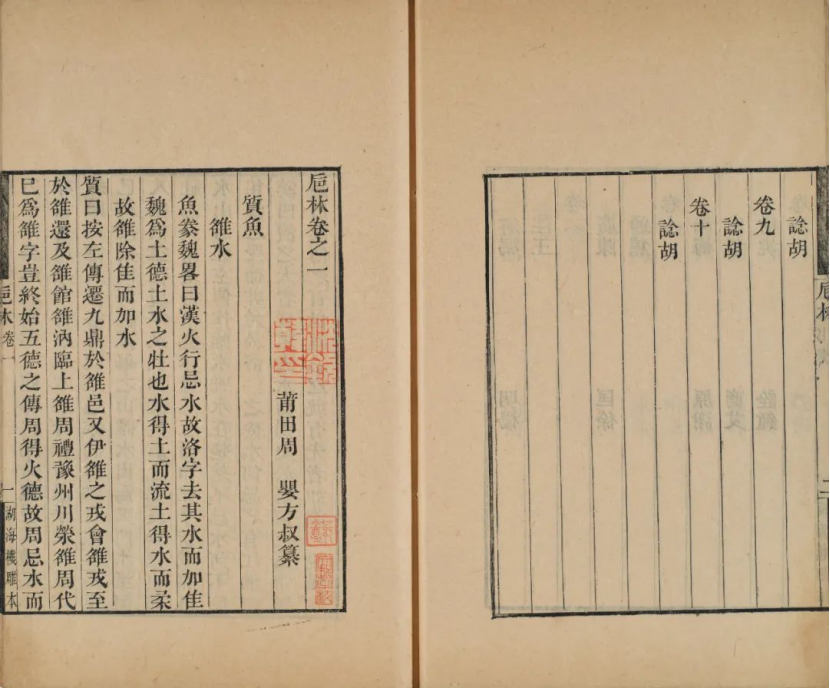 諗胡
卷九
諗胡
卷十
諗胡
卮林
二
卮林卷之一
莆田周　嬰方叔纂
質魚
雒水
魚豢魏畧曰漢火行忌水故洛字去其水而加隹
魏爲土德土水之壯也水得土而流土得水而柔
故雒除隹而加水
質曰按左傳遷九鼎於雒邑又伊雒之戎會雒戎至
於雒還及雒館雒汭臨上雒周禮豫州川榮雒周代
巳爲雒字豈終始五德之傳周得火德故周忌水而
卮林卷一
一
湖海樓雕本